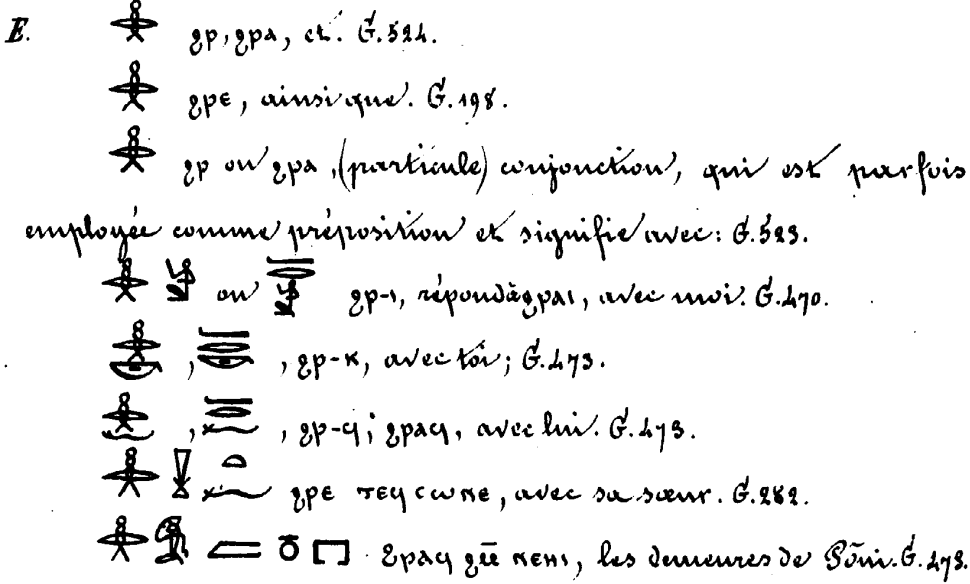 E. ϩⲣ, ϩⲣⲁ, et. G. 524.
ϩⲣⲉ, ainsi que. G. 198.
ϩⲣ ou ϩⲣⲁ, (particule) conjonction, qui est parfois
employée comme préposition et signifie avec: G. 523.
ou ϩⲣ-ⲓ, répond à ϩⲣⲁⲓ, avec moi. G. 470.
, , ϩⲣ-ⲕ, avec toi; G. 473.
, , ϩⲣ-ϥ; ϩⲣⲁϥ, avec lui. G. 473.
ϩⲣⲉ ⲧⲉϥ ⲥⲱⲛⲉ, avec sa sœur. G. 282.
ϩⲣⲁϥ les demeures de G. 473.